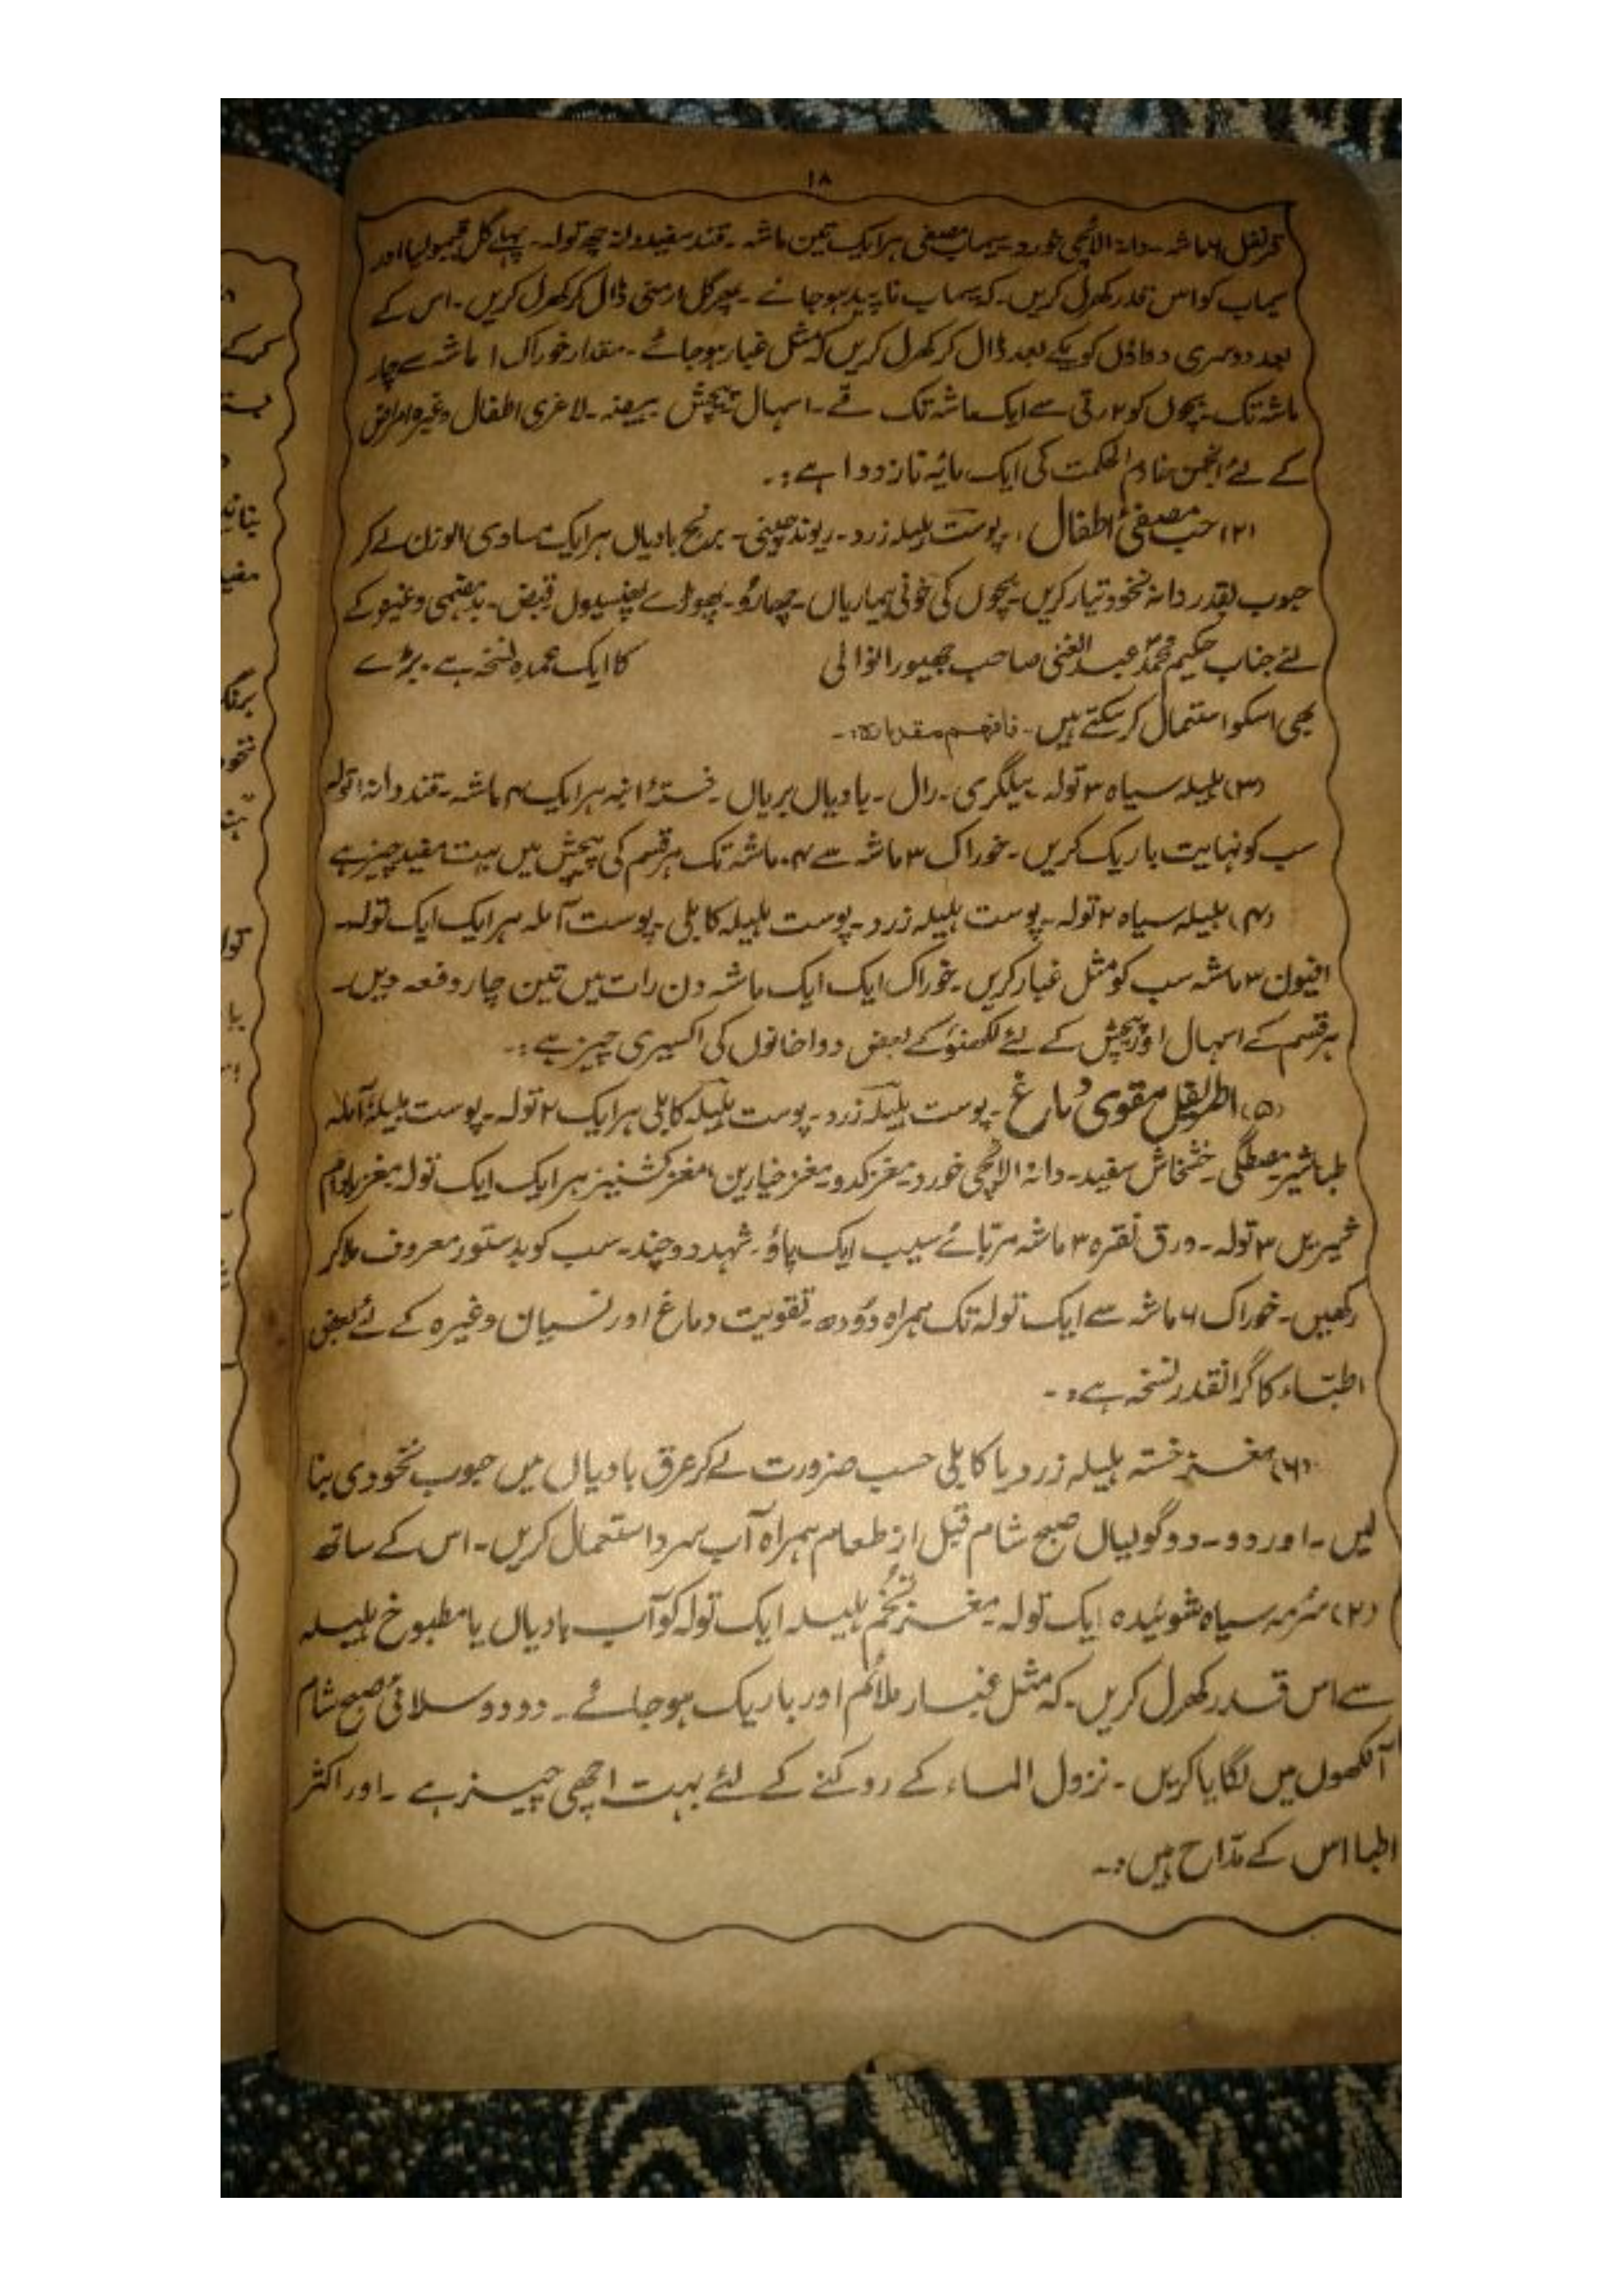 ۱۸
قرنفل ۶ ماشہ۔ دانہ الائچی خورد۔ سیماب مصفی ہر ایک تین ماشہ۔ قند سفید ولہ چھ تولہ۔ پہلے گل اور
سیماب کو اس قدر کھرل کریں۔ کہ سیماب ناپید ہو جائے۔ پھر گل ارمنی ڈال کر کھرل کریں۔ اس کے
بعد دوسری دواؤں کو یکے بعد ڈال کر کھرل کریں کہ مثل غبار ہو جائے۔ مقدار خوراک ۱ ماشہ سے چار
ماشہ تک۔ بچوں کو ۲ رتی سے ایک ماشہ تک قے۔ اسہال پیچش ہیضہ۔ لاغری اطفال وغیرہ امراض
کے لئے انجمن خادم الحکمت کی ایک مائیہ ناز دوا ہے:۔
(۲) حب مصفیٰ اطفال:۔ پوست ہلیلہ زرد۔ ریوند چینی۔ برنج بادیاں ہر ایک مساوی الوزن لے کر
حبوب بقدر دانہ نخود تیار کریں۔ بچوں کی خونی بیماریاں۔ پھوڑے پھنسیوں قبض۔ بدہضمی وغیرہ کے
لئے جناب حکیم محمد عبد الغنی صاحب جھیورانوالی کا ایک عمدہ نسخہ ہے۔ بڑے
بھی اسکو استعمال کر سکتے ہیں۔ فافہم مقدارہ:۔
(۳) ہلیلہ سیاہ ۳ تولہ۔ بیلگری۔ رال۔ بادیاں بریاں۔ خستہ انبہ ہر ایک ۴ ماشہ۔ قند دانہ ا تولہ
سب کو نہایت باریک کریں۔ خوراک ۳ ماشہ سے ۴۔ ماشہ تک ہر قسم کی پیچش میں بہت مفید چیز ہے
(۴) ہلیلہ سیاہ ۲ تولہ۔ پوست ہلیلہ زرد۔ پوست ہلیلہ کابلی۔ پوست آملہ ہر ایک ایک تولہ۔
افیون ۳ ماشہ سب کو مثل غبار کریں۔ خوراک ایک ایک ماشہ دن رات میں تین چار دفعہ دیں۔
ہر قسم کے اسہال اور پیچش کے لئے لکھنؤ کے بعض دواخانوں کی اکسیری چیز ہے:۔
(۵) اطریفل مقوی دماغ۔ پوست ہلیلہ زرد۔ پوست ہلیلہ کابلی ہر ایک ۲ تولہ۔ پوست بلیلہ آملہ
طباشیر مصطگی۔ خشخاش سفید۔ دانہ الائچی خورد۔ مغز کدو۔ مغز خیارین، مغز کشنیز ہر ایک ایک تولہ۔ مغز بادام
شیریں ۳ تولہ۔ ورق نقرہ ۳ ماشہ مربائے سیب ایک پاؤ۔ شہد دو چند۔ سب کو بدستور معروف ملا کر
رکھیں۔ خوراک ۶ ماشہ سے ایک تولہ تک ہمراہ دودھ۔ تقویت دماغ اور نسیان وغیرہ کے لئے بعض
اطباء کا گرانقدر نسخہ ہے:۔
(۶) مغز خستہ ہلیلہ زرد یا کابلی حسب ضرورت لے کر عرق بادیاں میں حبوب نخودی بنا
لیں۔ اور دو۔ دو گولیاں صبح شام قبل از طعام ہمراہ آب سرد استعمال کریں۔ اس کے ساتھ
(۲) سرمہ سیاہ شوئیدہ ایک تولہ۔ مغز تخم ہلیلہ ایک تولہ کو آب بادیاں یا مطبوخ ہلیلہ
سے اس قدر کھرل کریں۔ کہ مثل غبار ملائم اور باریک ہو جائے۔ دو دو سلائی صبح شام
آنکھوں میں لگایا کریں۔ نزول الماء کے روکنے کے لئے بہت اچھی چیز ہے۔ اور اکثر
اطبا اس کے مداح ہیں:۔